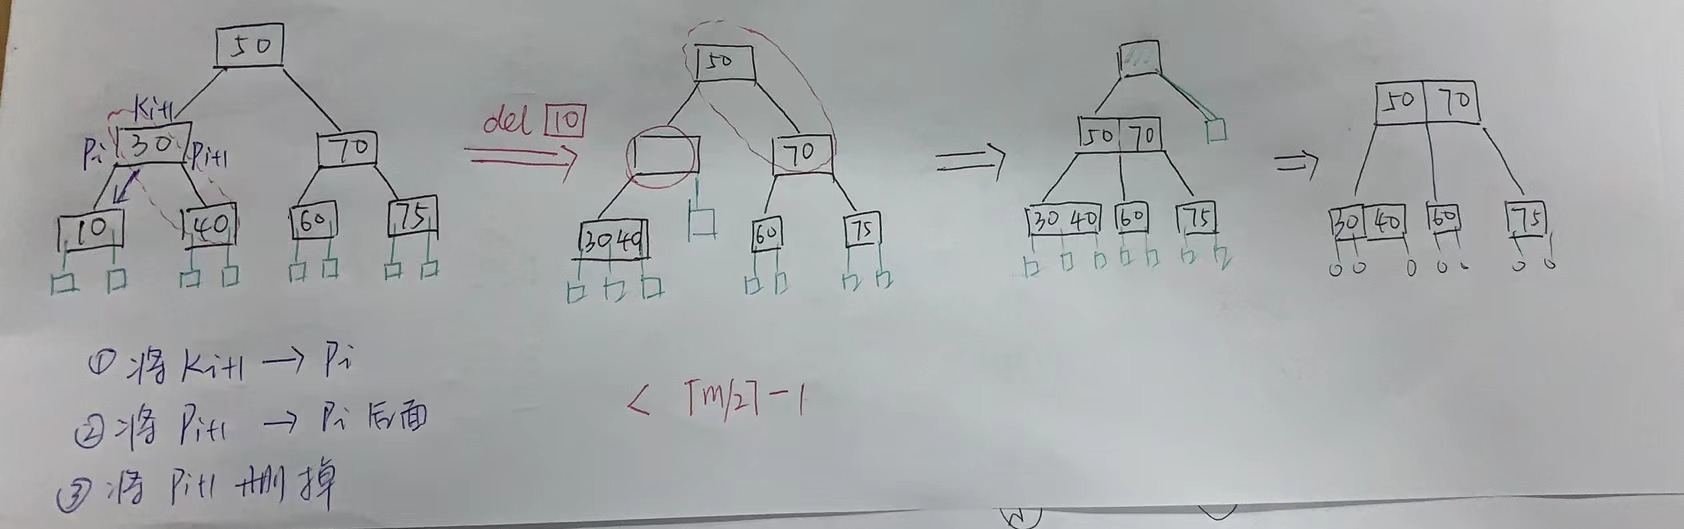 50
Ki+1
Pi 30 Pi+1
70
10 40 60 75
del 10
50
70
30 40 60 75
50 70
30 40 60 75
50 70
30 40 60 75
① 将 Ki+1 → Pi
② 将 Pi+1 → Pi 后面
③ 将 Pi+1 删掉
< ⌈m/2⌉-1